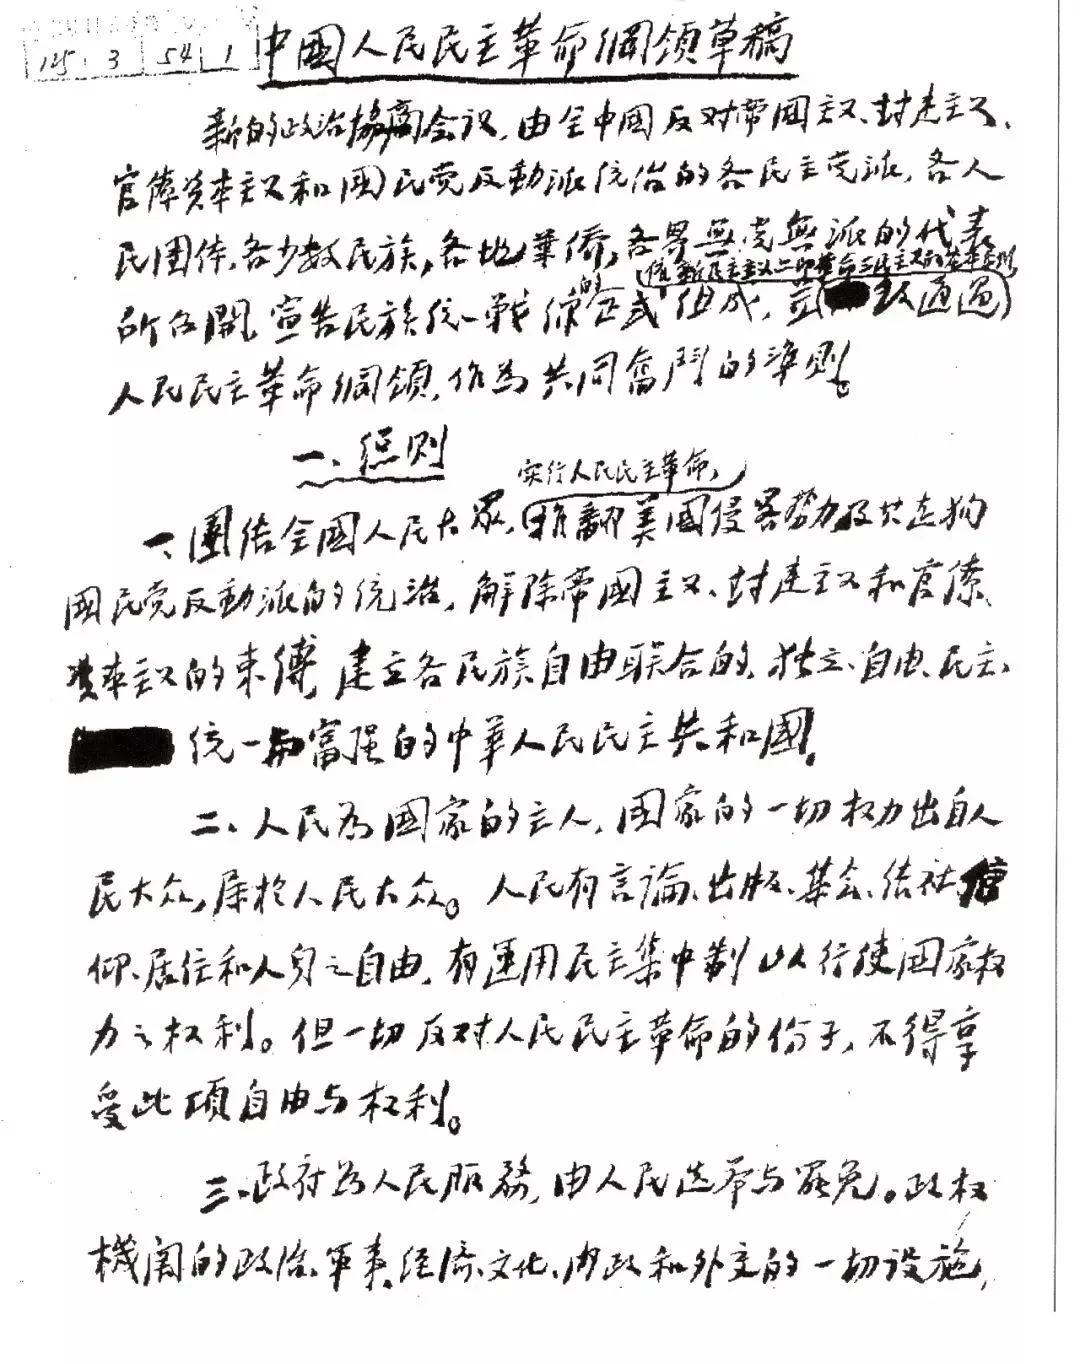 125 3 54 1
中國人民民主革命綱領草稿
新的政治協商会议，由全中國反对帝国主义、封建主义、
官僚资本主义和國民党反動派统治的各民主党派，各人
民团体，各少数民族，各地華僑，各界無党無派的代表
依新民主主义——即革命三民主义的基本原则
所召開，宣告民族统一戰線的正式组成，並一致通过
人民民主革命綱領，作為共同奮鬥的準则。
一、总则
实行人民民主革命，
一、團结全國人民大眾，推翻美國侵畧势力及其走狗
國民党反動派的统治，解除帝國主义、封建主义和官僚
资本主义的束缚，建立各民族自由联合的、独立、自由、民主、
统一与富强的中華人民民主共和國。
二、人民為國家的主人，国家的一切权力出自人
民大众，属於人民大众。人民有言論、出版、集会、结社、信
仰、居住和人身之自由，有運用民主集中制以行使国家权
力之权利。但一切反对人民民主革命的份子，不得享
受此项自由与权利。
三、政府為人民服務，由人民选举与罷免。政权
機関的政治、軍事、经济、文化、内政和外交的一切设施，